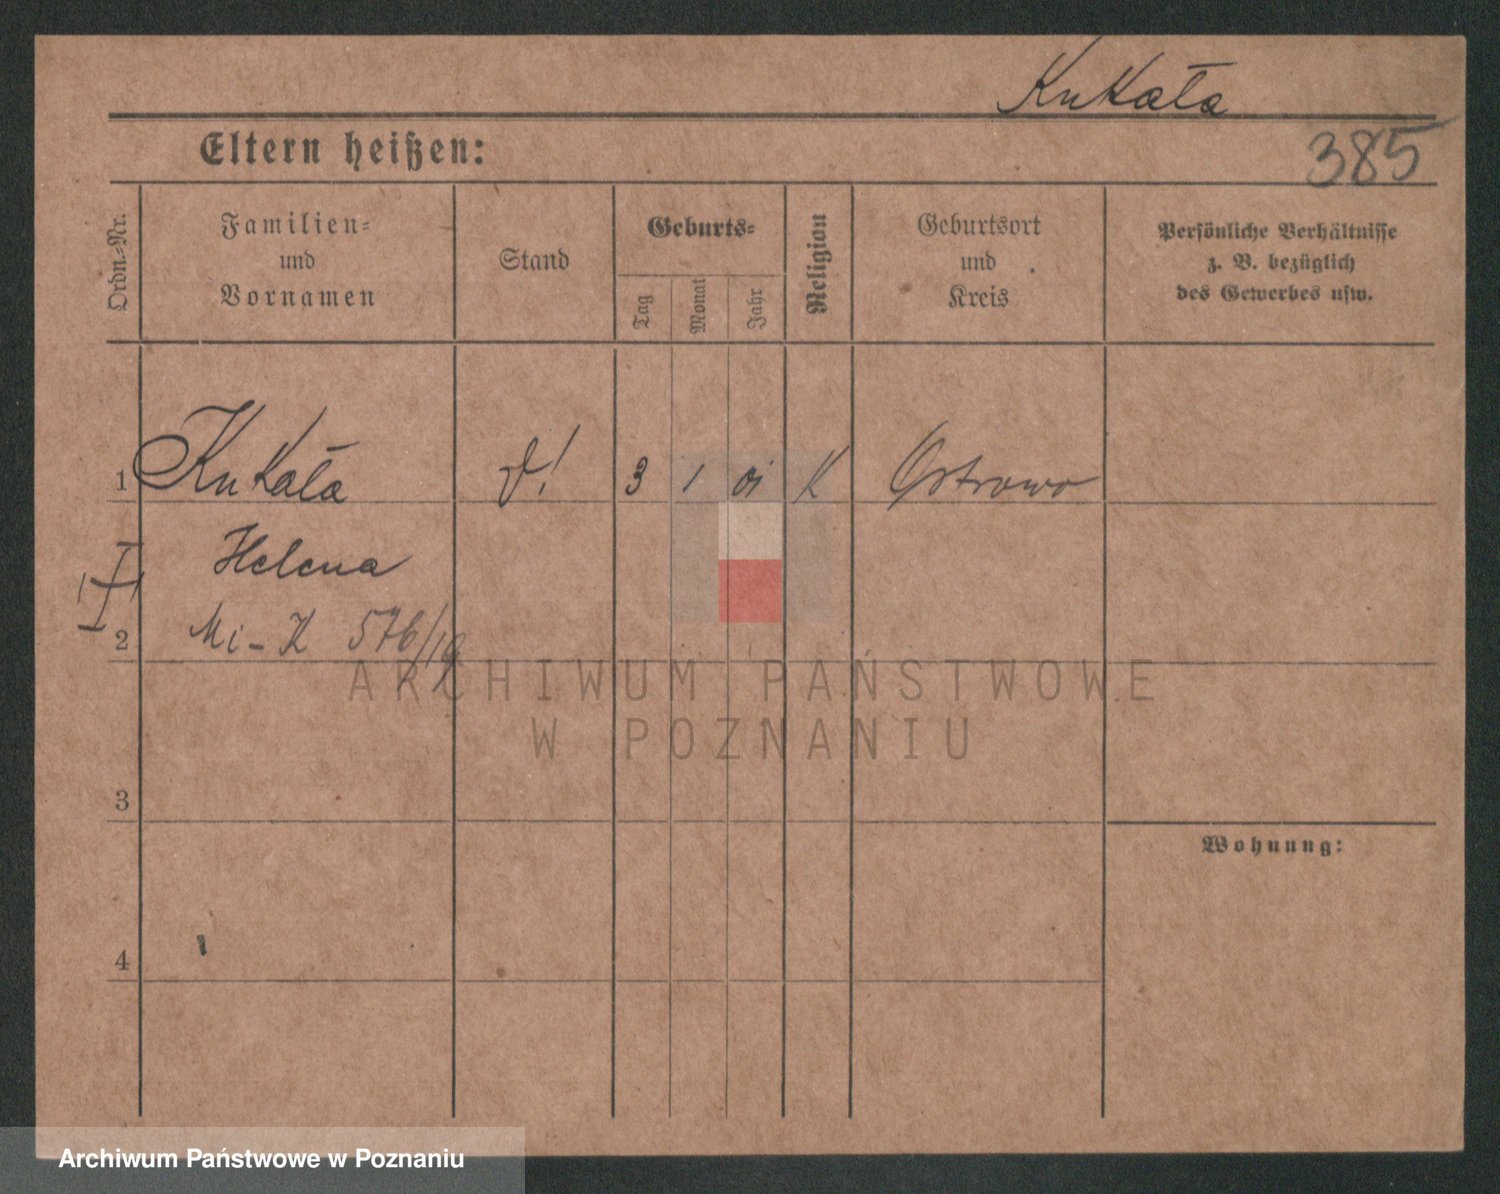 Kukała
Eltern heißen:
385
Ordn.-Nr.
Familien-
und
Vornamen
Stand
Geburts-
Tag
Monat
Jahr
Religion
Geburtsort
und
Kreis
Persönliche Verhältnisse
z. B. bezüglich
des Gewerbes usw.
1 Kukała 3 1 01 K Ostrowo
Helena
2 Mi-K 576/19
ARCHIWUM PAŃSTWOWE
W POZNANIU
3
Wohnung:
4
Archiwum Państwowe w Poznaniu